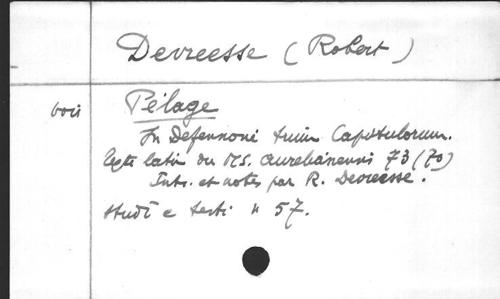 Devreesse (Robert)
voir Pélage
In Defensione trium Capitulorum.
Texte latin du MS. Aurelianensis 73 (70)
Intr. et notes par R. Devreesse.
Studi e testi n 57.